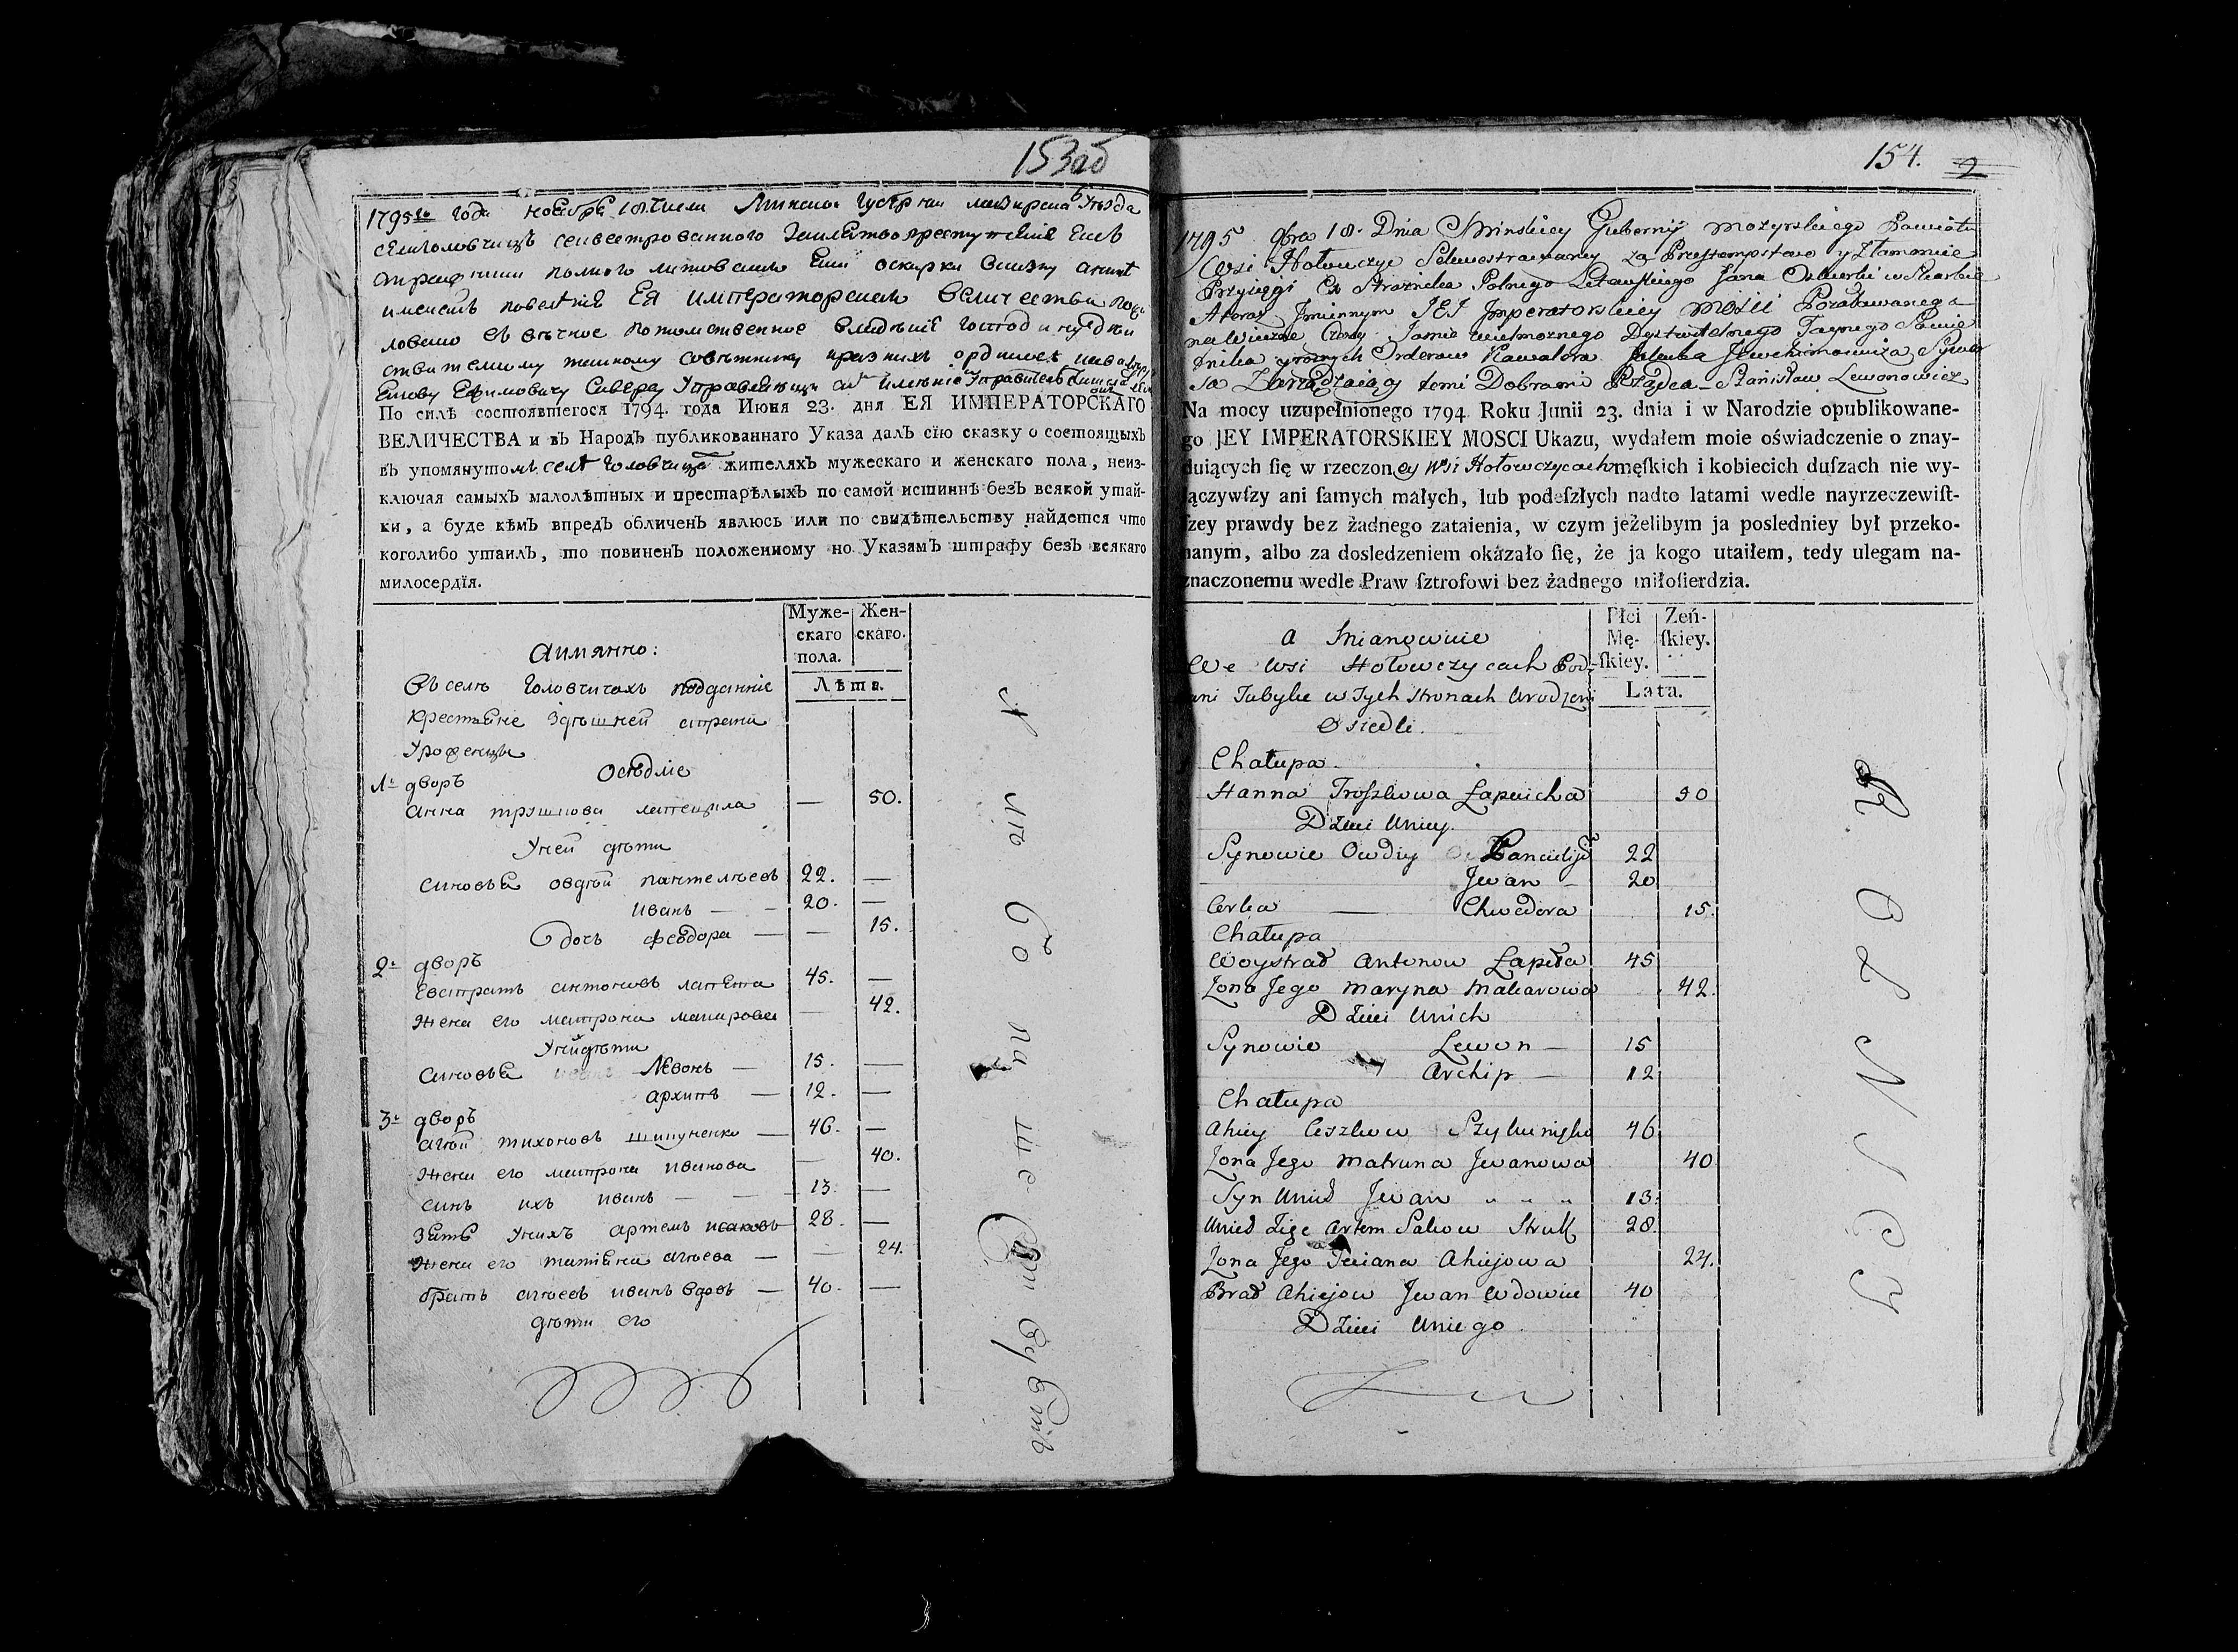 153об
1795го года ноября 18 числа Минской Губернии Мозырскаго уезда
села Головчицъ секвестрованного
полного литовскаго Оскирки
именемъ повеленіе ЕЯ Императорскаго Величества
ловано въ вечное потомственное владеніе господину
ствителному тайному советнику и разныхъ ординовъ кавалеру
Якову Ефимовичу Сиверсу
По силѣ состоявшегося 1794. года Июня 23. дня ЕЯ ИМПЕРАТОРСКАГО
ВЕЛИЧЕСТВА и въ Народъ публикованнаго Указа далъ сїю сказку о состоящыхъ
въ упомянутомъ селѣ Головчицахъ жителяхъ мужескаго и женскаго пола, неиз-
ключая самыхъ малолѣтныхъ и престарѣлыхъ по самой истиннѣ безъ всякой утай-
ки, а буде кѣмъ впредъ обличенъ явлюсь или по свидѣтельству найдется что
коголибо утаилъ, то повиненъ положенному по Указамъ штрафу безъ всякаго
милосердїя.
Муже-
скаго
пола.
Жен-
скаго.
Лѣта.
аимянно:
Въ селе Головчичахъ подданніе
крестьяне здешней страни
Урофенцы
Оседліе
1й дворъ
Анна Трушкова Лапециха — 50.
У ней дети
Синовья Овдей Пантелеевъ 22. —
Иванъ — 20. —
Дочь Феодора — — 15.
2й дворъ
Евстратъ Антоновъ Лапета 45. —
Жена его Матрона Макарова — 42.
У ней дети
Синовья Левонъ — 15. —
Архипъ — 12. —
3й дворъ
Агей Тихоновъ Шикуненко — 46. —
Жена его Матрона Иванова — 40.
Синъ ихъ Иванъ — — 13. —
Зять у нихъ Артемъ Исаковъ 28. —
Жена его Татіана Агеева — — 24.
братъ Агеевъ Иванъ вдовъ — 40. —
дети его
154.
2
1795 9bra 18. Dnia Minskiey Gubernij Mozyrskiego Powiatu
Wsi Hołowczyc Sekwestrowaney za Przestempstwo y złamanie
Przysięgi Ex Straznika Polnego Litewskiego Jana Oskierki w Skarbie
A teraz Jmiennym JEJ Jmperatorskiey Mosci Podarowanego
na Wieczne Czasy Jasnie Wielmoznego Dystwitelnego Taynego Sowie
tnika y roznych Orderow Kawalera Jakuba Jewchimowicza Sywer
sa Zarządzaiący temi Dobrami Rządca Stanisław Lewonowicz
Na mocy uzupełnionego 1794 Roku Junii 23. dnia i w Narodzie opublikowane-
go JEY IMPERATORSKIEY MOSCI Ukazu, wydałem moie oświadczenie o znay-
duiących ſię w rzeczoney Wsi Hołowczycach męſkich i kobiecich duſzach nie wy-
łączywſzy ani ſamych małych, lub podeſzłych nadto latami wedle nayrzeczewiſt-
ſzey prawdy bez żadnego zataienia, w czym jeżelibym ja posledniey był przeko-
nanym, albo za dosledzeniem okázało ſię, że ja kogo utaiłem, tedy ulegam na-
znaczonemu wedle Praw ſztrofowi bez żadnego miłoſierdzia.
Płci
Mę-
ſkiey.
Zeń-
ſkiey.
Lata.
a Mianowicie
We Wsi Hołowczycach Pod-
ani Tubylce w Tych Stronach Urodzeni
Osiedli.
Chałupa.
Hanna Troszkowa Łapicicha 50
Dzieci Uniey.
Synowie Owdiy Pancielij 22
Jwan — 20
Corka — Chwedora 15.
Chałupa
Woystrad Antonow Łapeta 45
Zona Jego Maryna Makarowa 42.
Dzieci Unich
Synowie Lewon — 15
Archip — 12
Chałupa
Ahiey Ciszkow Szykunińko 46
Zona Jego Matruna Jwanowa 40
Syn Unich Jwan " " " 13.
Unich Zięc Artem Sakow Struk 28.
Zona Jego Taciana Ahiejowa 24.
Brad Ahiejow Jwan Wdowiec 40
Dzieci Uniego.